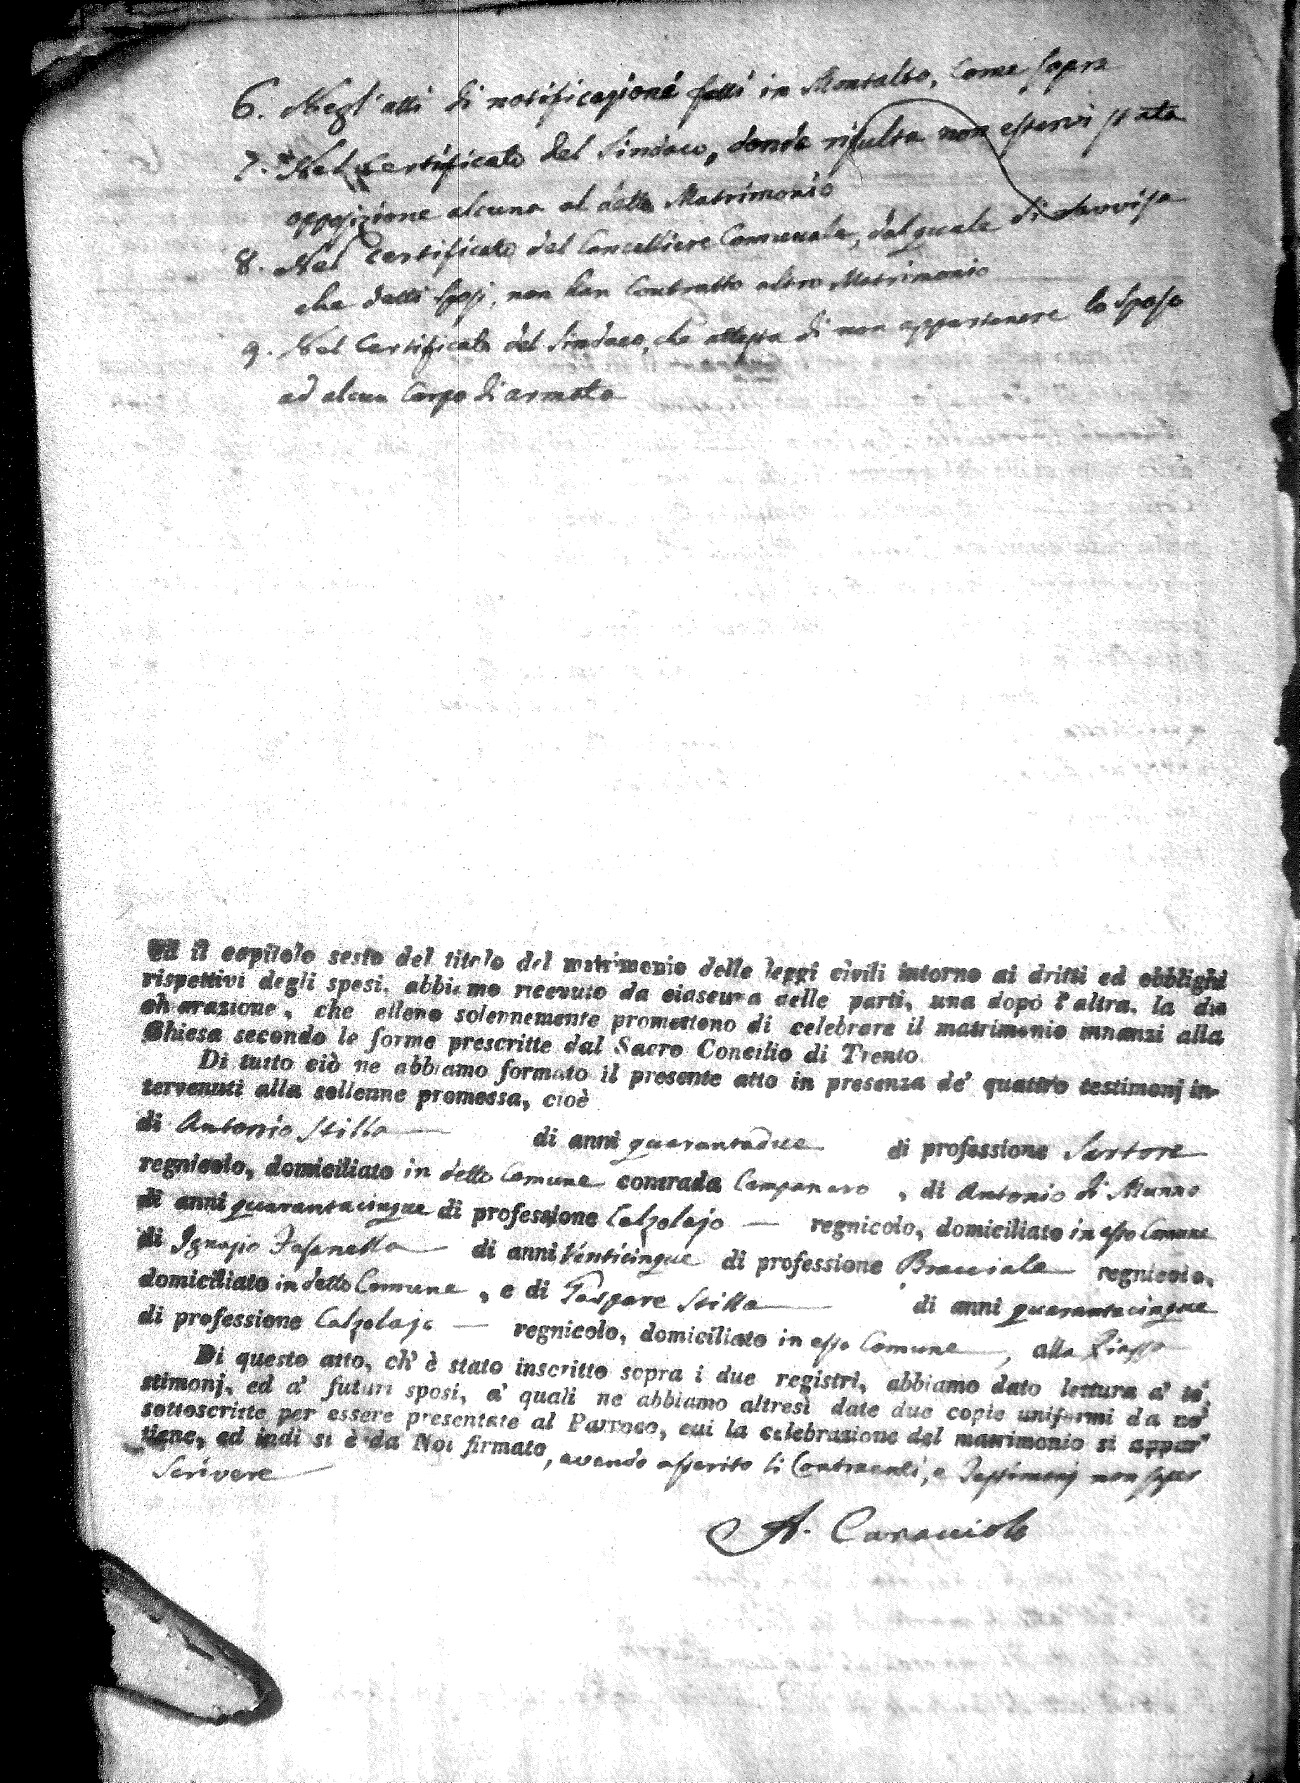 6. Negl'atti di notificazione fatti in Montalto, come sopra
7. Nel Certificato del Sindaco, donde risulta non esservi stata
opposizione alcuna al detto Matrimonio
8. Nel Certificato del Cancelliere Comunale, dal quale si ravvisa
che detti Sposi, non han Contratto altro Matrimonio
9. Nel Certificato del Sindaco, che attesta di non appartenere lo Sposo
ad alcun Corpo di armata
Ed il capitolo sesto del titolo del matrimonio delle leggi civili intorno ai dritti ed obblighi
rispettivi degli sposi, abbiamo ricevuto da ciascuna delle parti, una dopo l'altra, la di
chiarazione, che elleno solennemente promettono di celebrare il matrimonio innanzi alla
Chiesa secondo le forme prescritte dal Sacro Concilio di Trento.
Di tutto ciò ne abbiamo formato il presente atto in presenza de' quattro testimonj in-
tervenuti alla sollenne promessa, cioè
di Antonio Stilla di anni quarantadue di professione Sartore
regnicolo, domiciliato in detto Comune contrada Campanaro, di Antonio di Munno
di anni quarantacinque di professione Calzolajo regnicolo, domiciliato in esso Comune
di Ignazio Fasanella di anni Venticinque di professione Bracciale regnicolo,
domiciliato in detto Comune, e di Gaspare Stilla di anni quarantacinque
di professione Calzolajo regnicolo, domiciliato in esso Comune, alla Piazza
Di questo atto, ch' è stato inscritto sopra i due registri, abbiamo dato lettura a' te
stimonj, ed a' futuri sposi, a' quali ne abbiamo altresì date due copie uniformi da noi
sottoscritte per essere presentate al Parroco, cui la celebrazione del matrimonio si appar
tiene, ed indi si è da Noi firmato, avendo asserito li Contraenti, e Testimonj non saper
Scrivere
A. Caracciolo